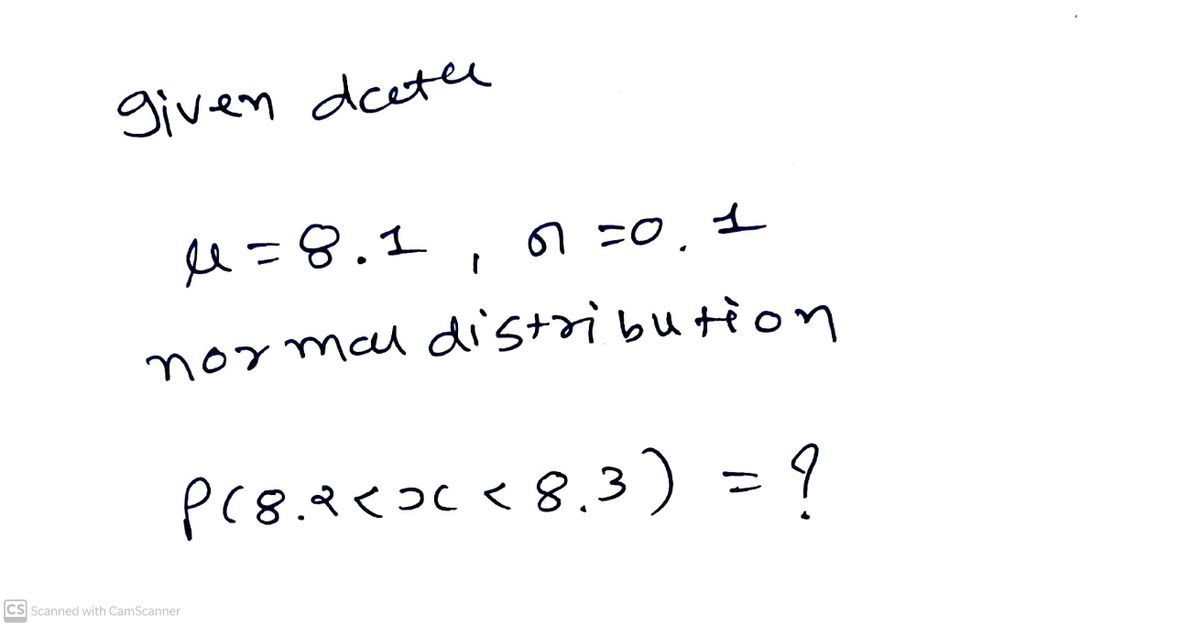 given data
μ = 8.1 , σ = 0.1
normal distribution
P(8.2 < x < 8.3) = ?
CS Scanned with CamScanner